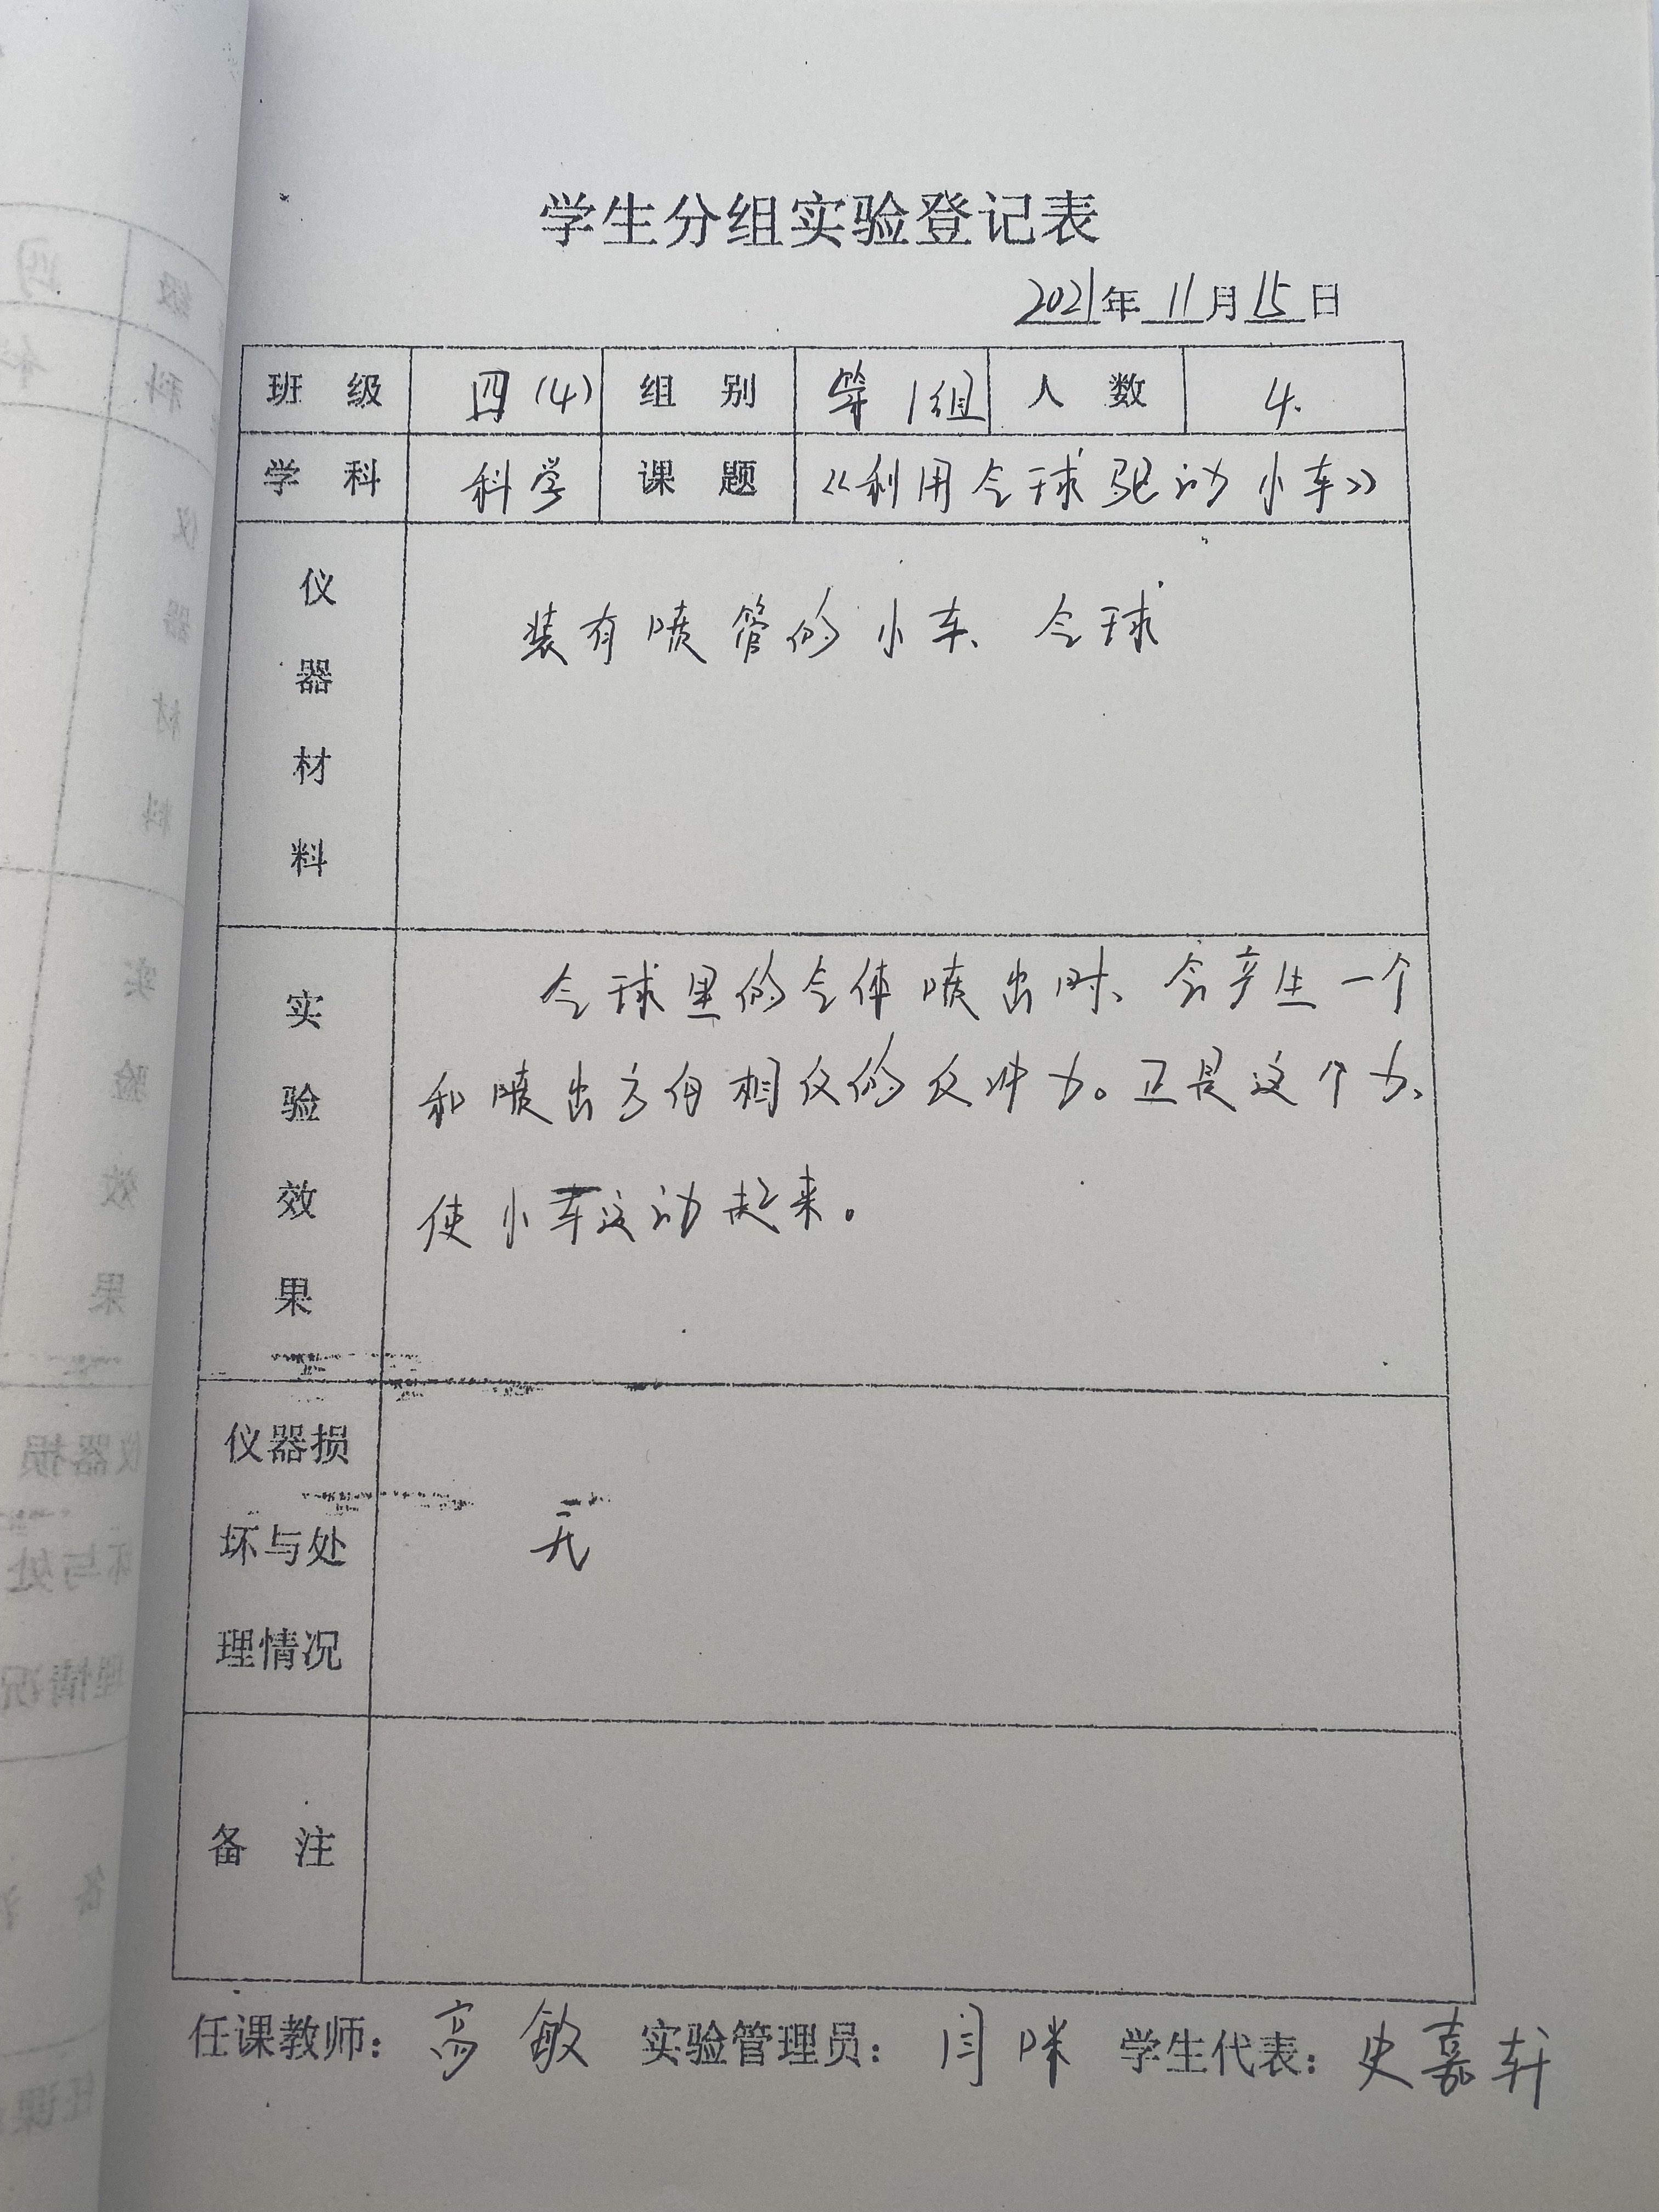 学生分组实验登记表
2021年 11月15日
班 级 四(4) 组 别 第1组 人 数 4.
学 科 科学 课 题 《利用气球驱动小车》
仪器材料 装有喷管的小车、气球
实验效果 气球里的气体喷出时、会产生一个
和喷出方向相反的反冲力。正是这个力、
使小车运动起来。
仪器损
坏与处 无
理情况
备 注
任课教师：高敏 实验管理员：闫咪 学生代表：史嘉轩